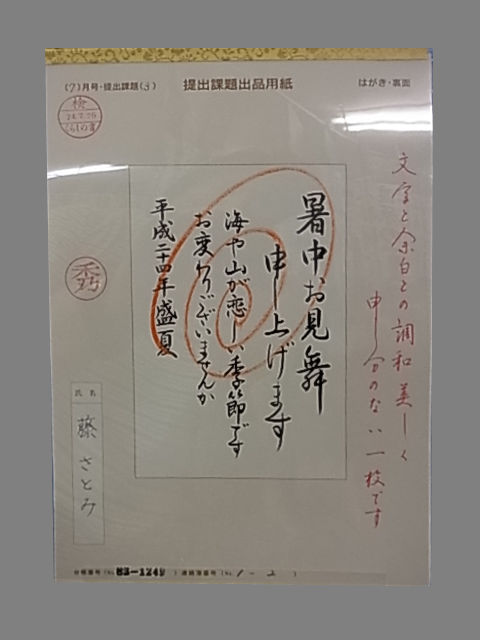 (7)月号・提出課題(3)
提出課題出品用紙
はがき・裏面
検
24.7.25
くらしの書
文字と余白との調和美しく
申し分のない一枚です
暑中お見舞
申し上げます
海や山が恋しい季節です
お変わりございませんか
平成二十四年盛夏
秀
氏名
藤さとみ